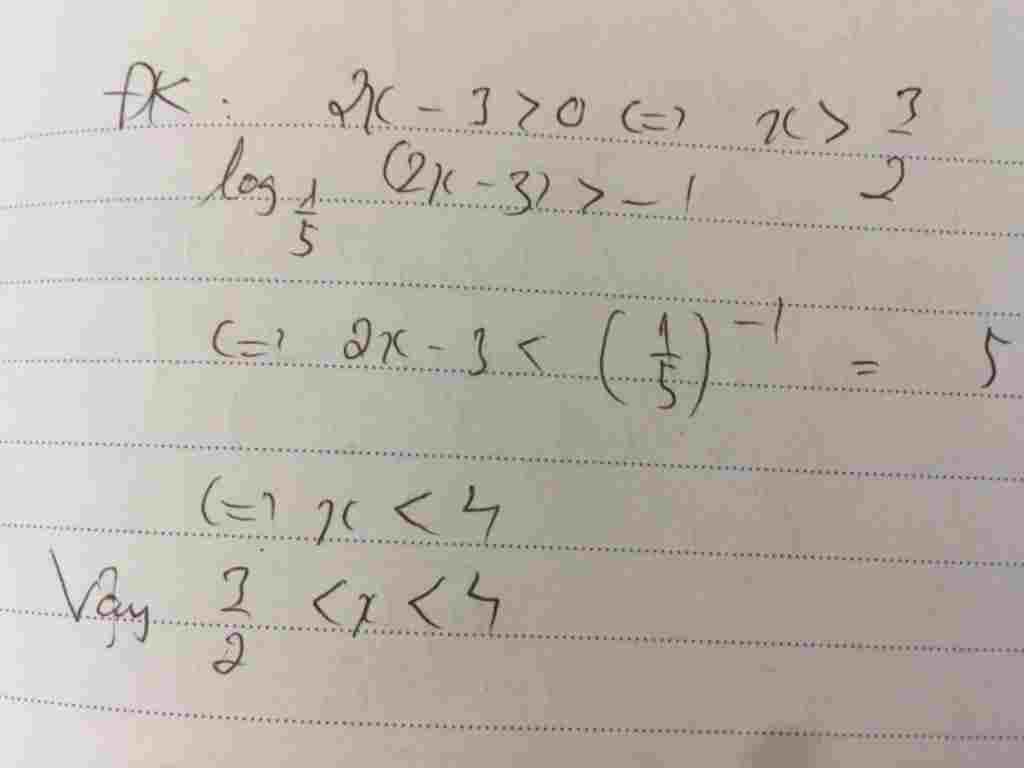 ĐK: 2x - 3 > 0 <=> x > 3/2
log_{1/5} (2x - 3) > -1
<=> 2x - 3 < (1/5)^{-1} = 5
<=> x < 4
Vậy 3/2 < x < 4